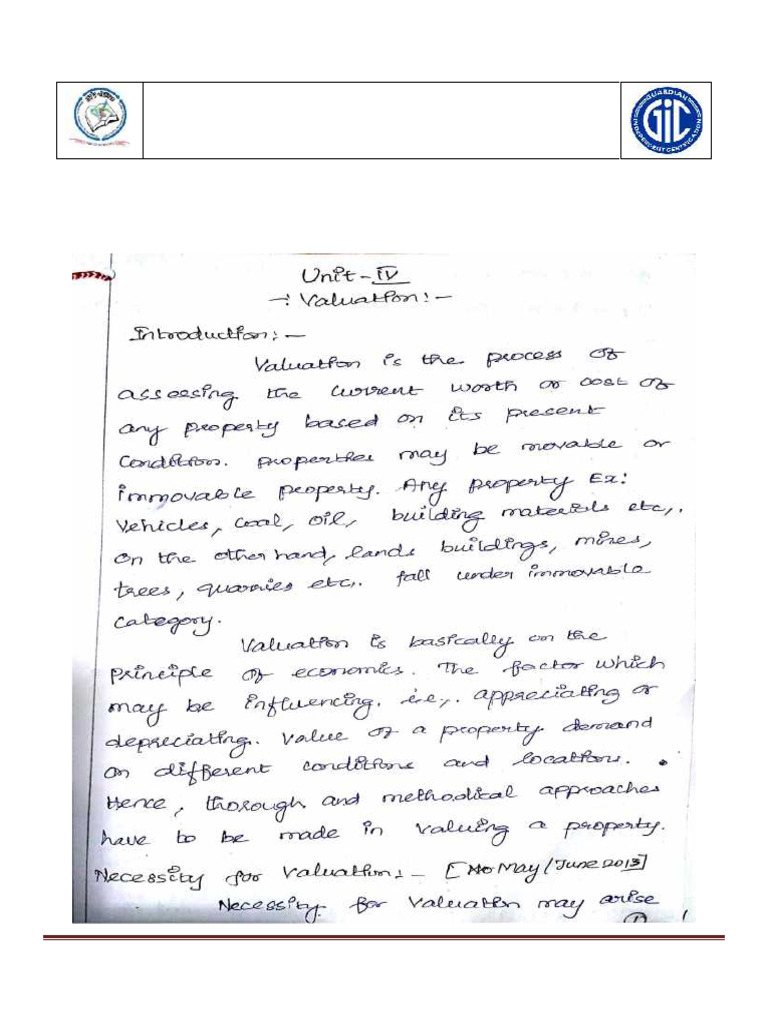 GUARDIAN
GIC
INDEPENDENT CERTIFICATION
Unit-IV
-: Valuation:-
Introduction:-
Valuation is the process of
assessing the current worth or cost of
any property based on its present
Condition. properties may be movable or
immovable property. Any property Ex:
Vehicles, coal, oil, building materials etc,.
on the other hand, lands buildings, mines,
trees, quarries etc,. fall under immovable
category.
Valuation is basically on the
principle of economics. The factor which
may be influencing. i.e,. appreciating or
depreciating. value of a property demand
on different conditions and locations.
Hence, thorough and methodical approaches
have to be made in valuing a property.
Necessity for Valuation:- [May/June 2013]
Necessity for valuation may arise
1